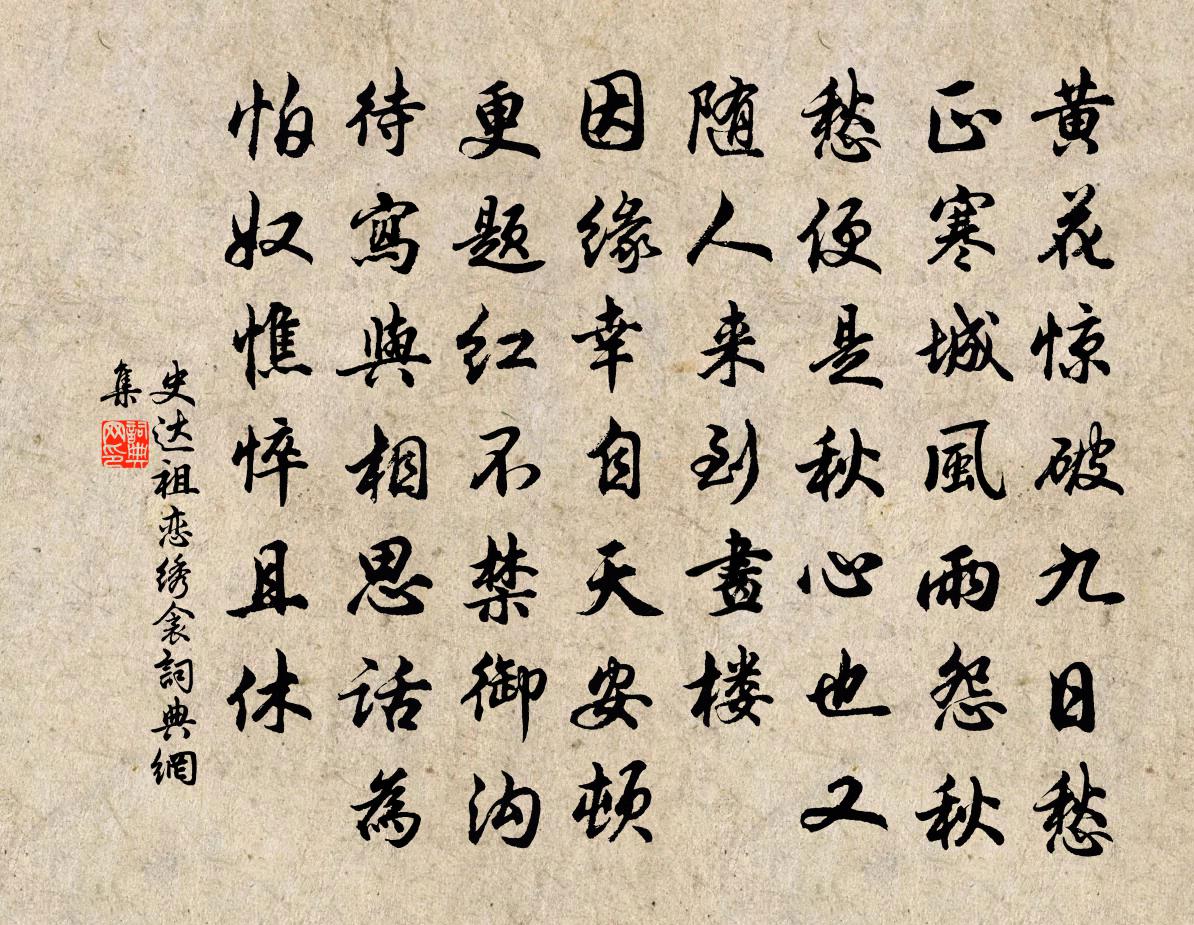 黄花惊破九日愁
正寒城風雨怨秋
愁便是秋心也又
随人来到畫楼
因缘幸自天安頓
更题红不禁御沟
待寫與相思话為
怕奴憔悴且休
史达祖恋绣衾詞典網
集
詞典
网印